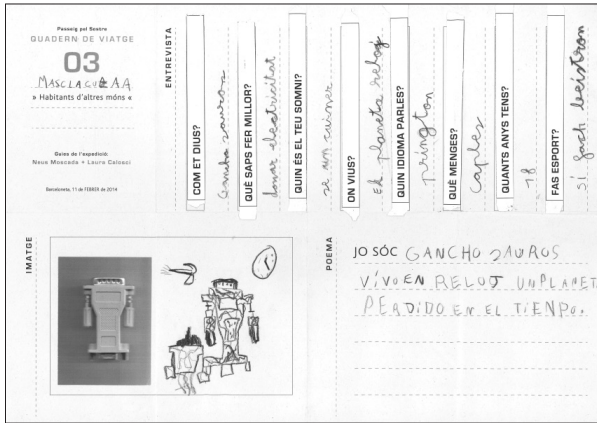 Passeig pel Sostre
QUADERN DE VIATGE
03
MASCLAGUERAA
» Habitants d'altres móns «
Guies de l'expedició:
Neus Moscada + Laura Calosci
Barceloneta, 11 de FEBRER de 2014
ENTREVISTA
COM ET DIUS?
Gancho sauros
QUÈ SAPS FER MILLOR?
donar electricitat
QUIN ÉS EL TEU SOMNI?
se un
ON VIUS?
El planeta reloj
QUIN IDIOMA PARLES?
prington
QUÈ MENGES?
caples
QUANTS ANYS TENS?
18
FAS ESPORT?
sí fach
IMATGE
POEMA
JO SÓC GANCHO SAUROS
VÍVO EN RELOJ UN PLANET
PERDIDO EN EL TIENPO.